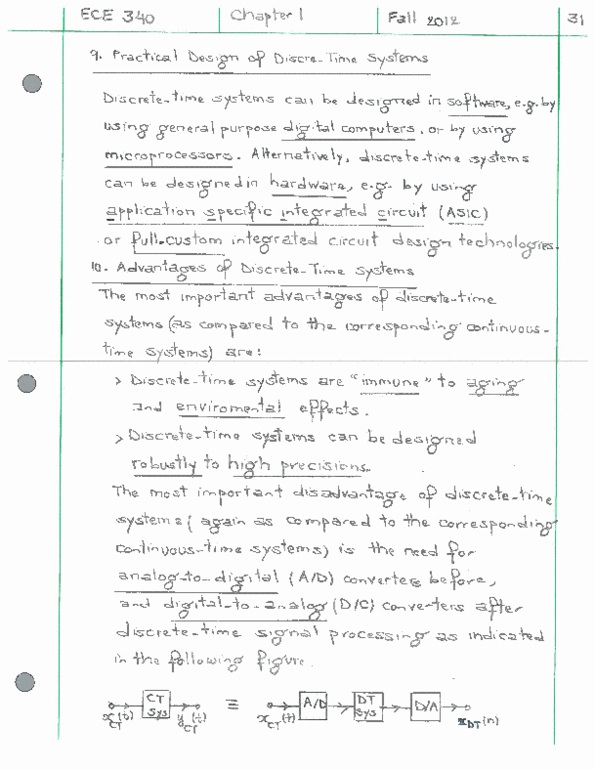 ECE 340 Chapter 1 Fall 2012 31
9. Practical Design of Discre-Time Systems
Discrete-time systems can be designed in software, e.g. by
using general purpose digital computers, or by using
microprocessors. Alternatively, discrete-time systems
can be designed in hardware, e.g. by using
application specific integrated circuit (ASIC)
or full-custom integrated circuit design technologies.
10. Advantages of Discrete-Time Systems
The most important advantages of discrete-time
systems (as compared to the corresponding continuous-
time systems) are:
> Discrete-time systems are "immune" to aging
and enviromental effects.
> Discrete-time systems can be designed
robustly to high precisions.
The most important disadvantage of discrete-time
systems (again as compared to the corresponding
continuous-time systems) is the need for
analog-to-digital (A/D) converters before,
and digital-to-analog (D/C) converters after
discrete-time signal processing as indicated
in the following figure.
CT Sys ≡ A/D DT Sys D/A
x_CT(t) y_CT(t) x_CT(t) x_DT(n)